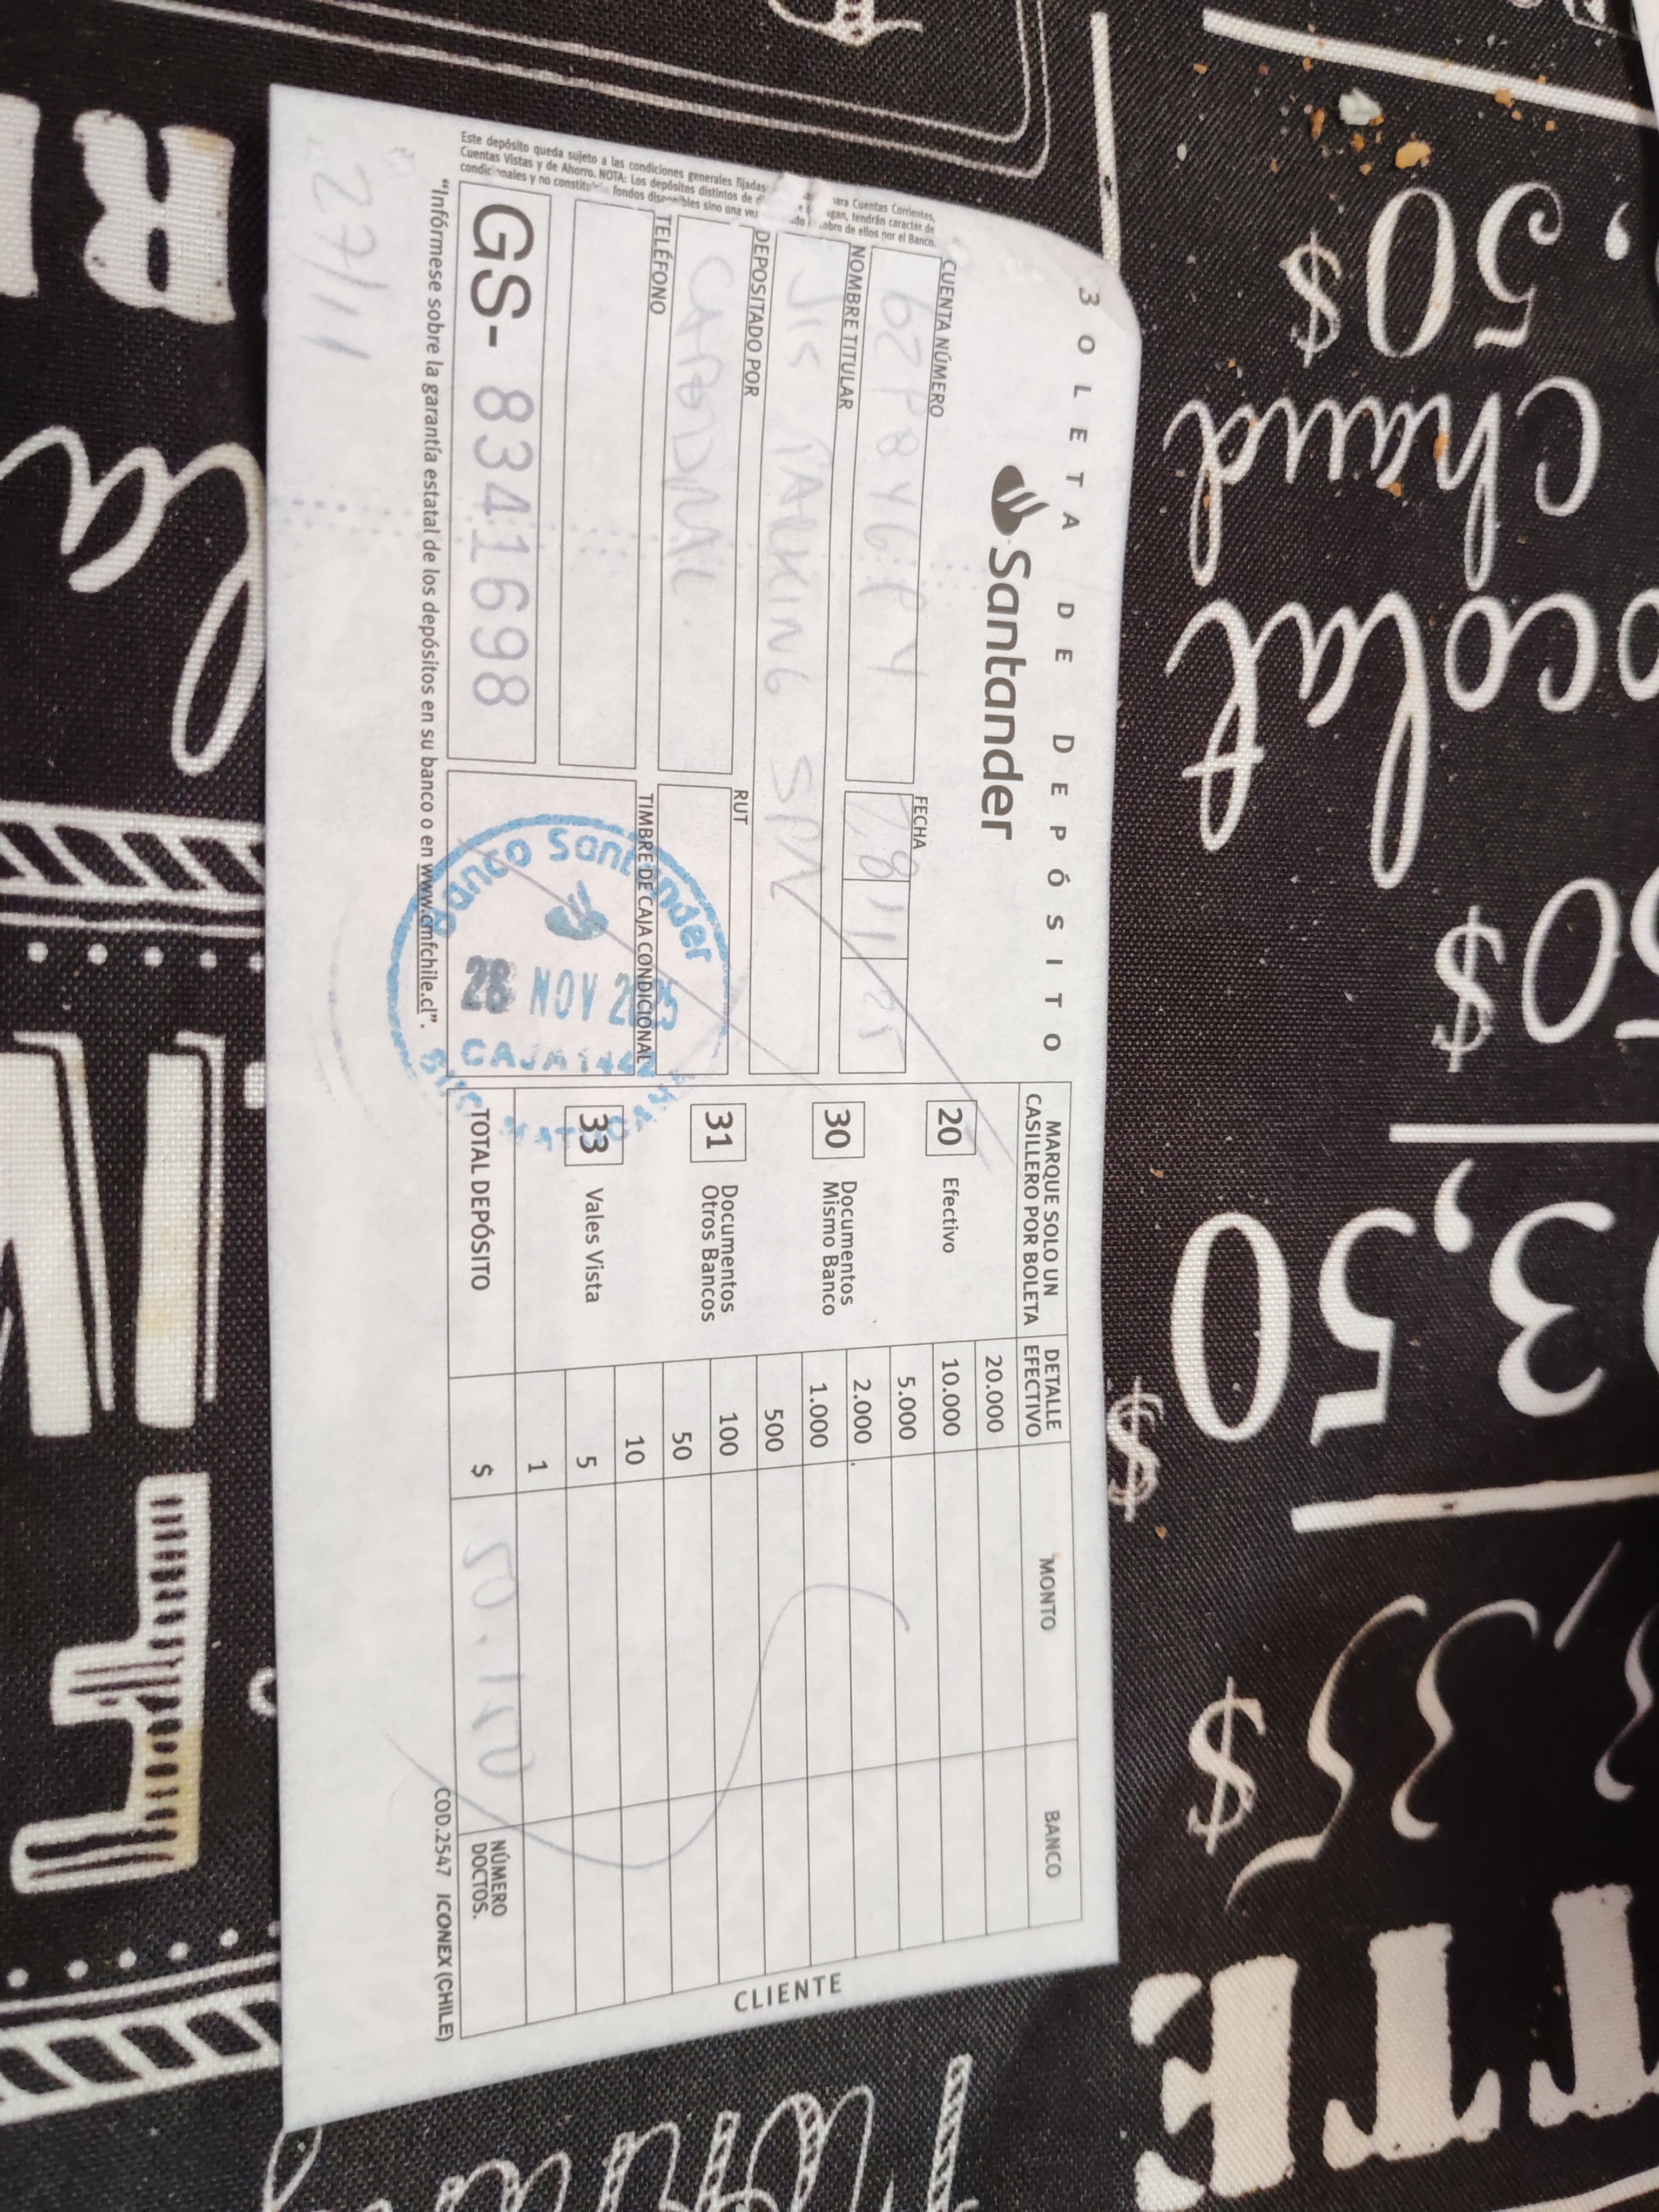 BOLETA DE DEPÓSITO
Santander
CUENTA NÚMERO
FECHA
28 11 25
NOMBRE TITULAR
JIS PARKING SPA
DEPOSITADO POR
RUT
TELÉFONO
TIMBRE DE CAJA CONDICIONAL
GS- 8341698
Banco Santander
28 NOV 2025
CAJA
MARQUE SOLO UN
CASILLERO POR BOLETA
DETALLE
EFECTIVO
MONTO
BANCO
20 Efectivo
30 Documentos
Mismo Banco
31 Documentos
Otros Bancos
33 Vales Vista
20.000
10.000
5.000
2.000
1.000
500
100
50
10
5
1
TOTAL DEPÓSITO $
NÚMERO
DOCTOS.
CLIENTE
"Infórmese sobre la garantía estatal de los depósitos en su banco o en www.cmfchile.cl".
COD.2547 ICONEX (CHILE)
27/11
Este depósito queda sujeto a las condiciones generales fijadas para Cuentas Corrientes,
Cuentas Vistas y de Ahorro. NOTA: Los depósitos distintos de tendrán caracter de
condicionales y no constituyen fondos disponibles sino una vez cobro de ellos por el Banco.
50$
chaud
chocolat
50$
3,50$
35$
TTE
la